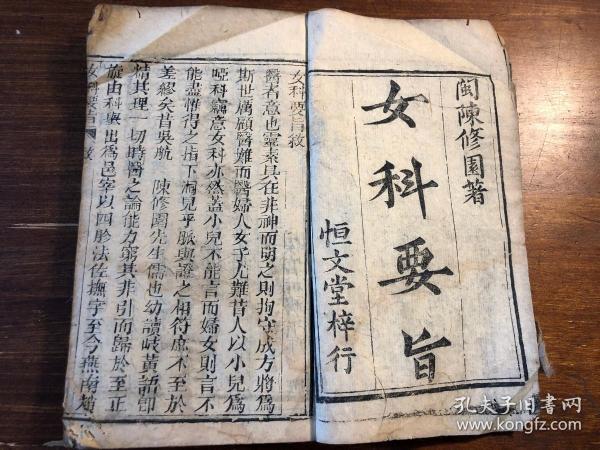 閩陳修園著
女科要旨
恒文堂梓行
女科要旨敘
醫者意也靈素具在非神而明之則拘守成方將為
斯世厲顧醫難而醫婦人女子尤難昔人以小兒為
啞科竊意女科亦然蓋小兒不能言而婦女則言不
能盡惟得之指下洞見乎脈與證之相符庶不至於
差繆矣昔吳航　陳修園先生儒也幼讀岐黃語卽
精其理一切時醫之論能力窮其非引而歸於至正
旋由科舉出為邑宰以四胗法佐撫字至今燕南趙
女科要旨 敘
孔夫子旧书网
www.kongfz.com